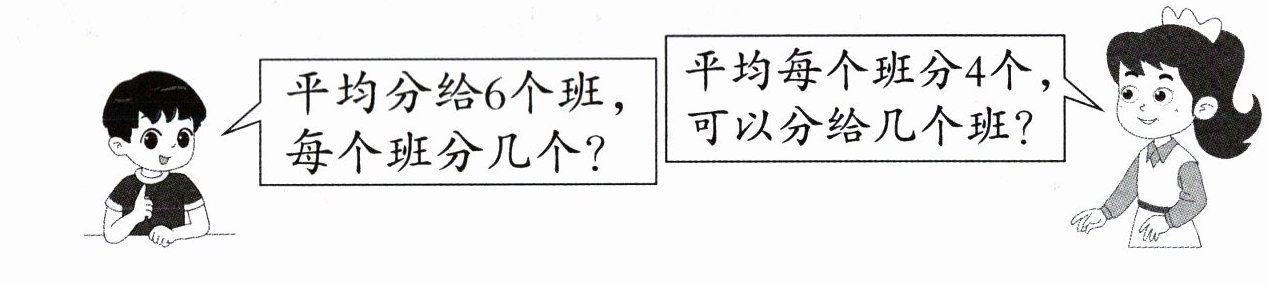 平均分给6个班，
每个班分几个？
平均每个班分4个，
可以分给几个班？